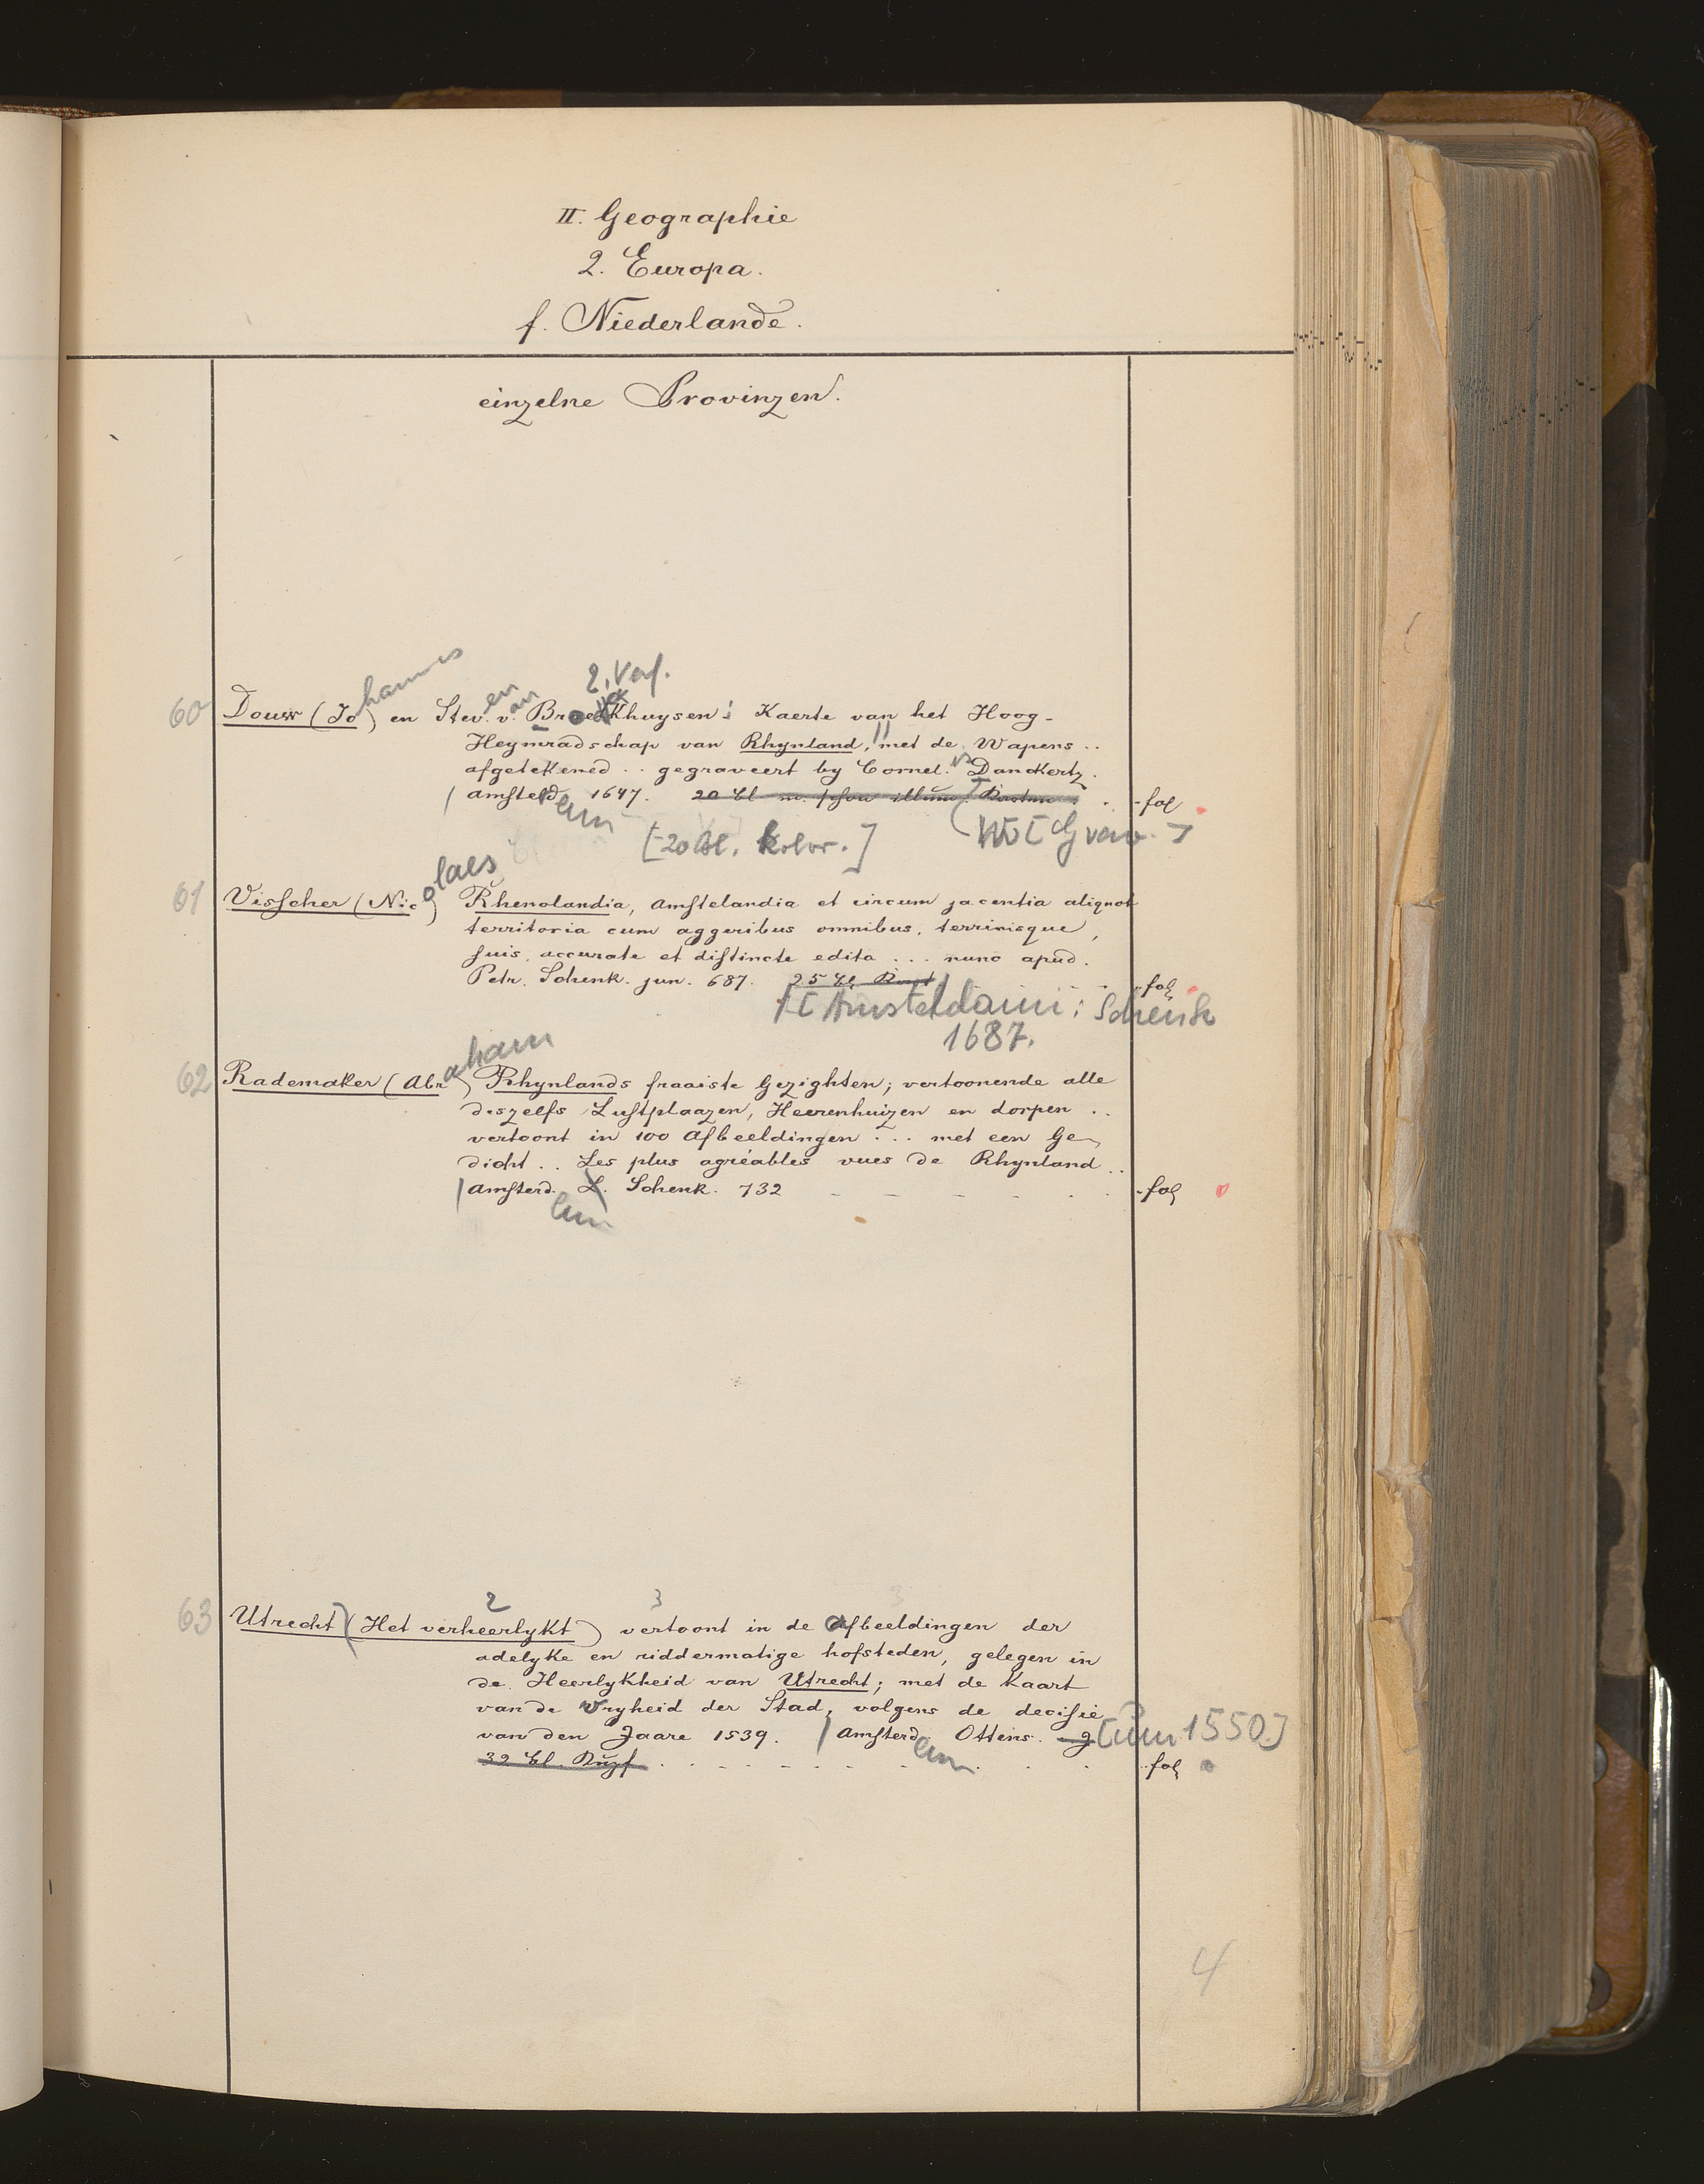 II. Geographie
2. Europa.
f. Niederlande.
einzelne Provinzen.
2. Verf.
60 Douw (Johannes) en Steven van Broeckhuysen: Kaerte van het Hoog-
Heymradschap van Rhynland, met de Wapens ..
afgetekened .. gegraveert by Cornel. Danckertz.
Amsteld 1647. 20 bl m. schon illum. - fol
[20 Bl. kolor.]
61 Visscher (Nicolaes) Rhenolandia, Amstelandia et circum jacentia aliquot
territoria cum aggeribus omnibus, terrinisque,
suis, accurate et distincte edita ... nunc apud.
Petr. Schenk. jun. 687. 25 bl. fol
[Amsteldami: Schenk
1687.
62 Rademaker (Abraham) Rhynlands fraaiste Gezighten; vertoonende alle
deszelfs Lustplaazen, Heerenhuizen en dorpen ..
vertoont in 100 Afbeeldingen ... met een Ge-
dicht .. Les plus agréables vues de Rhynland ..
Amsterd. L. Schenk. 732 - fol
2 3
63 Utrecht (Het verheerlykt) vertoont in de Afbeeldingen der
adelyke en riddermatige hofsteden, gelegen in
de Heerlykheid van Utrecht; met de Kaart
van de Vryheid der Stad, volgens de decisie
van den Jaare 1539. Amsterd Ottens. [um 1550]
32 bl. Kupf. fol
4